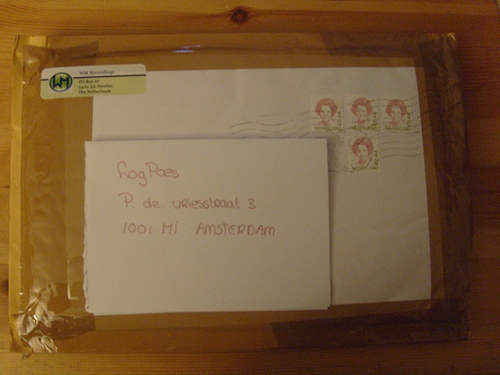 WM Recordings
PO Box
The Netherlands
WM
LogPaes
P. de vriesstraat 3
1001 Mi AMSTERDAM